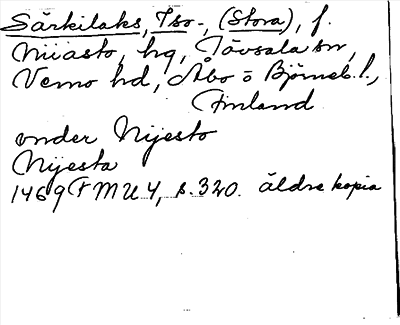 Särkilaks, Iso-, (Stora), f.
Niiasto, hg, Tövsala sn,
Vemo hd, Åbo o Björneb. l.,
Finland
under Nijesto
Nijesta
1469 FMU 4, s. 320. äldre kopia